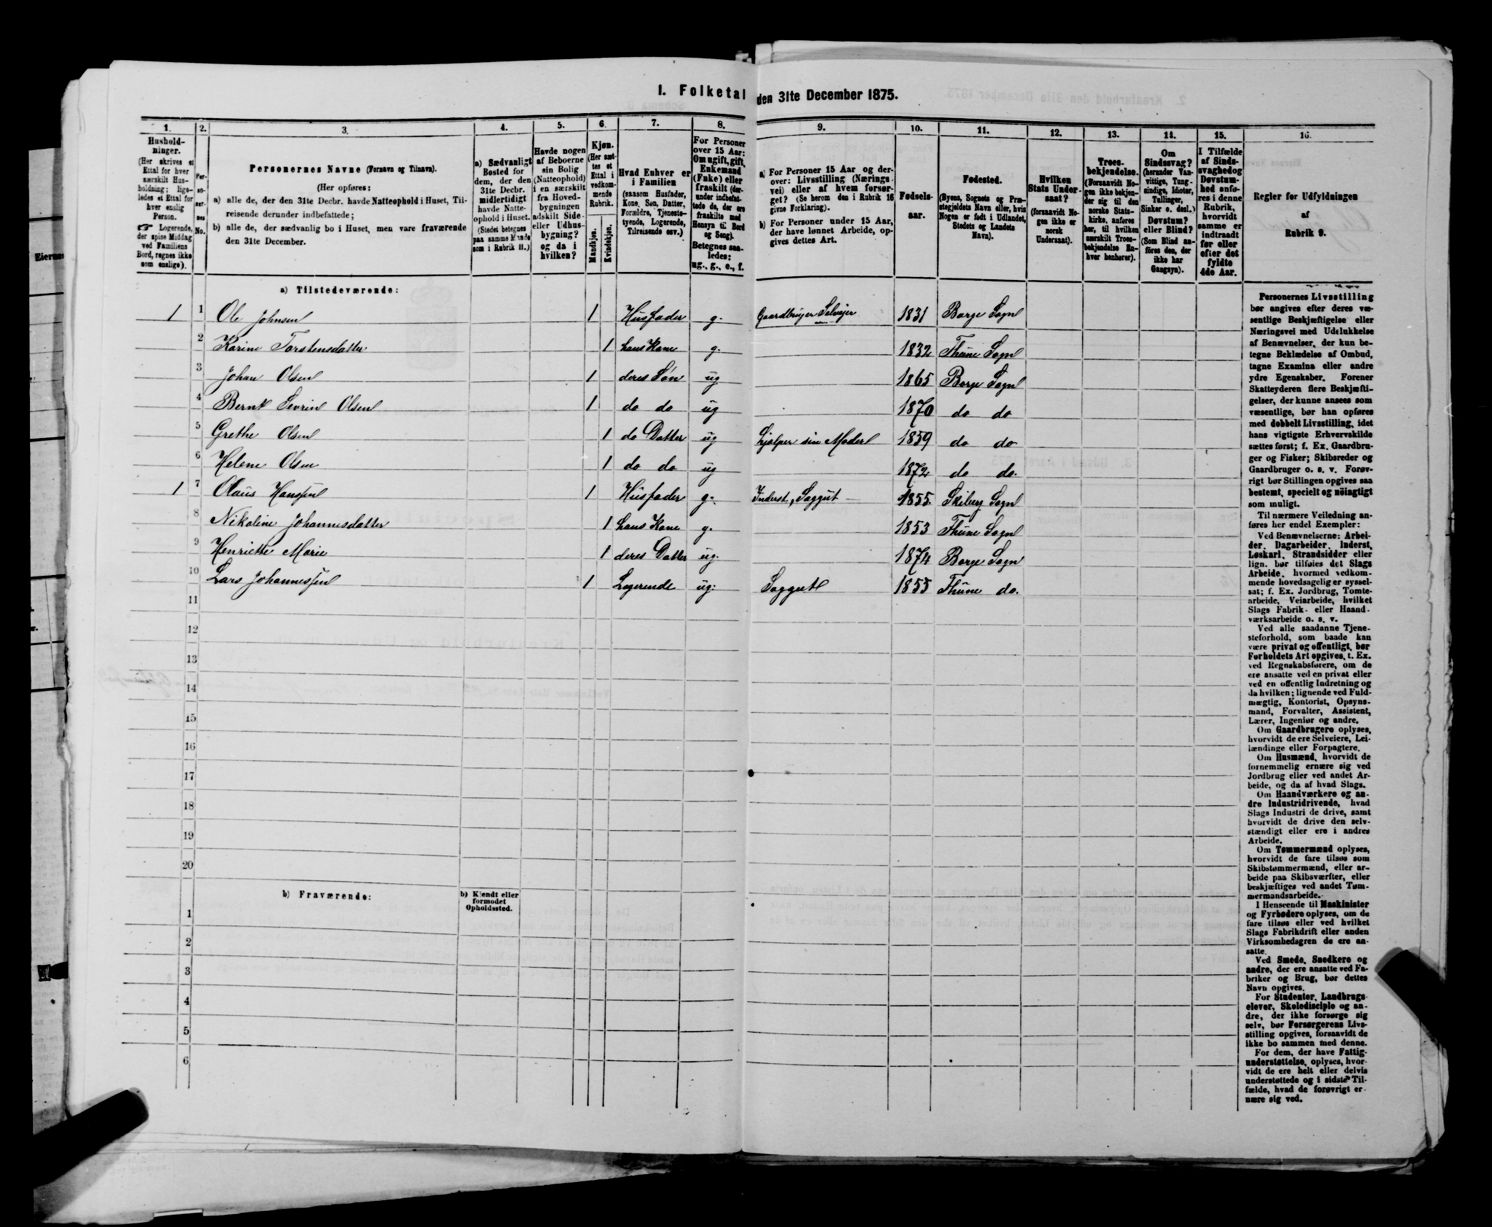 I. Folketal den 31te December 1875.
1. 2. 3. 4. 5. 6. 7. 8. 9. 10. 11. 12. 13. 14. 15. 16.
Husholdninger.
(Her skrives et Ettal for hver særskilt Husholdning; ligeledes et Ettal for hver enslig Person.
☞ Logerende, der spise Middag ved Familiens Bord, regnes ikke som enslige).
Personernes No.
Personernes Navne (Fornavn og Tilnavn).
(Her opføres:
a) alle de, der den 31te Decbr. havde Natteophold i Huset, Tilreisende derunder indbefattede;
b) alle de, der sædvanlig bo i Huset, men vare fraværende den 31te December.
a) Sædvanligt Bosted for dem, der den 31te Decbr. midlertidigt havde Natteophold i Huset.
(Stedet betegnes paa samme Maade som i Rubrik 11.)
Havde nogen af Beboerne sin Bolig (Natteophold) i en særskilt fra Hovedbygningen adskilt Side- eller Udhusbygning? og da i hvilken?
Kjøn.
(Her sættes et Ettal i vedkommende Rubrik.
Mandkjøn.
Kvindekjøn.
Hvad Enhver er i Familien
(saasom Husfader, Kone, Søn, Datter, Forældre, Tjenestetyende, Logerende, Tilreisende osv.)
For Personer over 15 Aar: Om ugift, gift, Enkemand (Enke) eller fraskilt (derunder indbefattede de, der ere fraskilte med Hensyn til Bord og Seng).
Betegnes saaledes: ug., g., e., f.
a) For Personer 15 Aar og derover: Livsstilling (Næringsvei) eller af hvem forsørget? (Se herom den i Rubrik 16 givne Forklaring).
b) For Personer under 15 Aar, der have lønnet Arbeide, opgives dettes Art.
Fødselsaar.
Fødested.
(Byens, Sognets og Præstegjeldets Navn eller, hvis Nogen er født i Udlandet, Stedets og Landets Navn).
Hvilken Stats Undersaat?
(forsaavidt Nogen ikke er norsk Undersaat).
Troesbekjendelse.
(Forsaavidt Nogen ikke bekjender sig til den norske Statskirke, anføres her, til hvilken særskilt Troesbekjendelse Enhver henhører).
Om Sindssvag? (herunder Vanvittige, Tungsindige, Idioter, Tullinger, Sinker o. desl.)
Døvstum? eller Blind?
(Som Blind anføres den, der ikke har Gangsyn).
I Tilfælde af Sindssvaghed og Døvstumhed anføres i denne Rubrik, hvorvidt samme er indtraadt før eller efter det fyldte 4de Aar.
Regler for Udfyldningen af Rubrik 9.
a) Tilstedeværende:
1 1 Ole Johnsen 1 Husfader g. Gaardbruger Selveier 1831 Borge Sogn
2 Karine Torstensdatter 1 hans Kone g. 1832 Thune Sogn
3 Johan Olsen 1 deres Søn ug 1865 Borge Sogn
4 Bernt Sevrin Olsen 1 do do ug 1870 do do
5 Grethe Olsen 1 do Datter ug hjælper sin Moder 1859 do do
6 Helene Olsen 1 do do ug 1872 do do.
1 7 Olaus Hanssen 1 Husfader g. Inderst, Saggut 1855 Skiberg Sogn
8 Nikoline Johannesdatter 1 hans Kone g. 1853 Thune Sogn
9 Henriette Marie 1 deres Datter ug. 1874 Borge Sogn
10 Lars Johannessen 1 Logerende ug. Saggut 1855 Thune do.
11
12
13
14
15
16
17
18
19
20
b) Fraværende:
b) Kjendt eller formodet Opholdssted.
1
2
3
4
5
6
Personernes Livsstilling
bør angives efter deres væ-
sentlige Beskjæftigelse eller
Næringsvei med Udelukkelse
af Benævnelser, der kun be-
tegne Beklædelse af Ombud,
tagne Examina eller andre
ydre Egenskaber. Forener
Skatteyderen flere Beskjæfti-
gelser, der kunne ansees som
væsentlige, bør han opføres
med dobbelt Livsstilling, idet
hans vigtigste Erhvervskilde
sættes først; f. Ex. Gaardbru-
ger og Fisker; Skibsreder og
Gaardbruger o. s. v. Forøv-
rigt bør Stillingen opgives saa
bestemt, specielt og nöiagtigt
som muligt.
Til nærmere Veiledning an-
føres her endel Exempler:
Ved Benævnelserne: Arbei-
der, Dagarbeider, Inderst,
Løskarl, Strandsidder eller
lign. bør tilføies det Slags
Arbeide, hvormed vedkom-
mende hovedsagelig er syssel-
sat; f. Ex. Jordbrug, Tomte-
arbeide, Veiarbeide, hvilket
Slags Fabrik- eller Haand-
værksarbeide o. s. v.
Ved alle saadanne Tjene-
steforhold, som baade kan
være privat og offentligt, bør
Forholdets Art opgives, t. Ex.
ved Regnskabsførere, om de
ere ansatte ved en privat eller
ved en offentlig Indretning og
da hvilken; lignende ved Fuld-
mægtig, Kontorist, Opsyns-
mand, Forvalter, Assistent,
Lærer, Ingeniør og andre.
Om Gaardbrugere oplyses,
hvorvidt de ere Selveiere, Lei-
lændinge eller Forpagtere.
Om Husmænd, hvorvidt de
fornemmelig ernære sig ved
Jordbrug eller ved andet Ar-
beide, og da af hvad Slags.
Om Haandværkere og an-
dre Industridrivende, hvad
Slags Industri de drive, samt
hvorvidt de drive den selv-
stændigt eller ere i andres
Arbeide.
Om Tømmermænd oplyses,
hvorvidt de fare tilsøs som
Skibstømmermænd, eller ar-
beide paa Skibsværfter, eller
beskjæftiges ved andet Tøm-
mermandsarbeide.
I Henseende til Maskinister
og Fyrbødere oplyses, om de
fare tilsøs eller ved hvilket
Slags Fabrikdrift eller anden
Virksomhedsgren de ere an-
satte.
Ved Smede, Snedkere og
andre, der ere ansatte ved Fa-
briker og Brug, bør dettes
Navn opgives.
For Studenter, Landbrugs-
elever, Skoledisciple og an-
dre, der ikke forsørge sig
selv, bør Forsørgerens Livs-
stilling opgives, forsaavidt de
ikke bo sammen med denne.
For dem, der have Fattig-
understøttelse, oplyses, hvor-
vidt de ere helt eller delvis
understøttede og i sidste Til-
fælde, hvad de forøvrigt er-
nære sig ved.